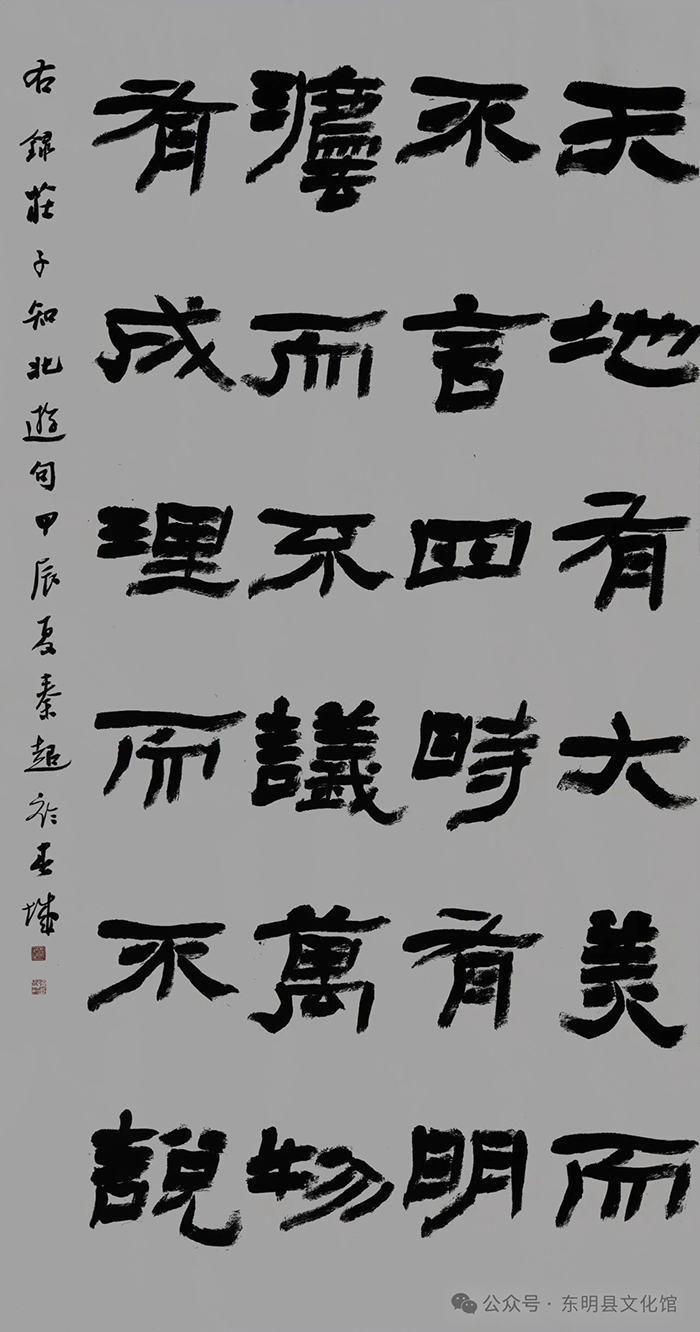 天地有大美而
不言四時有明
灋而不議萬物
有成理而不說
右錄莊子知北遊句甲辰夏秦超於城
公众号·东明县文化馆